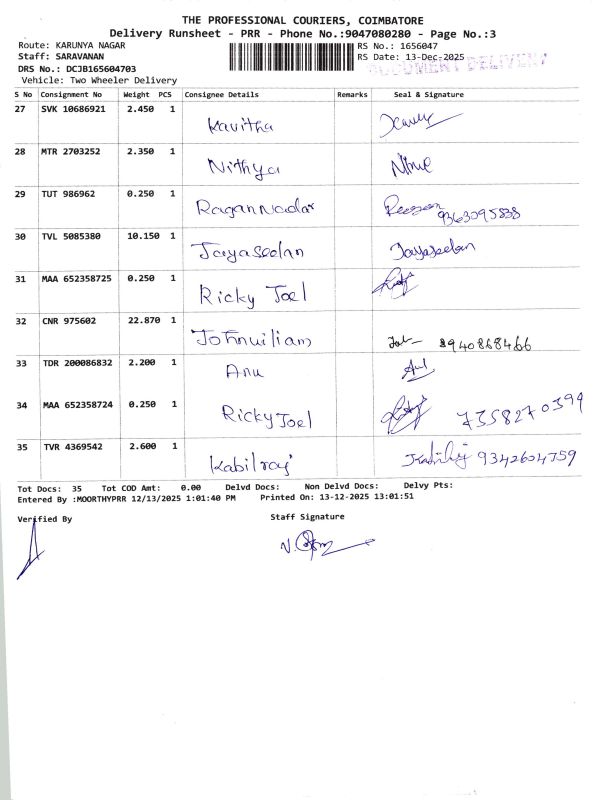 THE PROFESSIONAL COURIERS, COIMBATORE
Delivery Runsheet - PRR - Phone No.:9047080280 - Page No.:3
Route: KARUNYA NAGAR RS No.: 1656047
Staff: SARAVANAN RS Date: 13-Dec-2025
DRS No.: DCJB165604703 DOCUMENT DELIVERY
Vehicle: Two Wheeler Delivery
S No Consignment No Weight PCS Consignee Details Remarks Seal & Signature
27 SVK 10686921 2.450 1
Kavitha
28 MTR 2703252 2.350 1
Nithya
29 TUT 986962 0.250 1
RaganNadar 9363095838
30 TVL 5085380 10.150 1
Jayaseelan Jayaseelan
31 MAA 652358725 0.250 1
Ricky Joel
32 CNR 975602 22.870 1
Johnwiliam 8940868466
33 TDR 200086832 2.200 1
Anu
34 MAA 652358724 0.250 1
Ricky Joel 7358270399
35 TVR 4369542 2.600 1
Kabilraj 9342604759
Tot Docs: 35 Tot COD Amt: 0.00 Delvd Docs: Non Delvd Docs: Delvy Pts:
Entered By :MOORTHYPRR 12/13/2025 1:01:40 PM Printed On: 13-12-2025 13:01:51
Verified By Staff Signature